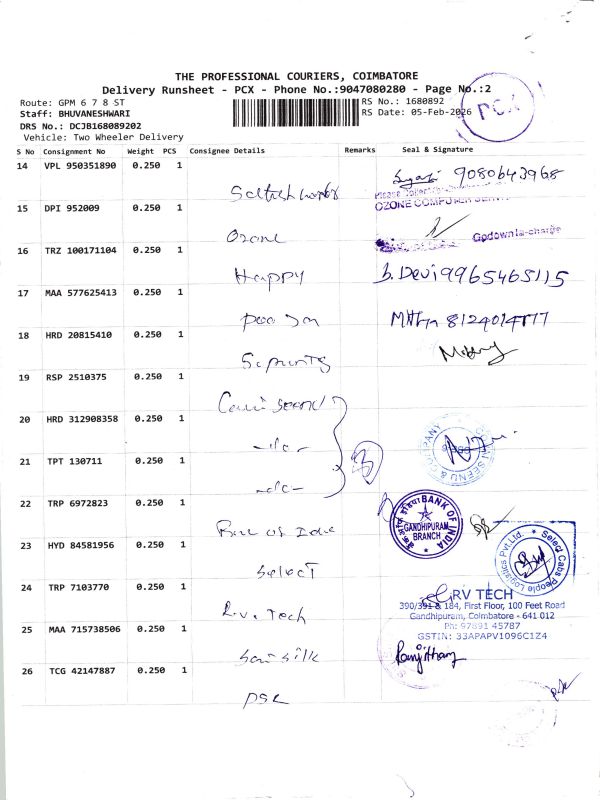 THE PROFESSIONAL COURIERS, COIMBATORE
Delivery Runsheet - PCX - Phone No.:9047080280 - Page No.:2
Route: GPM 6 7 8 ST
RS No.: 1680892
Staff: BHUVANESHWARI
RS Date: 05-Feb-2026
DRS No.: DCJB168089202
Vehicle: Two Wheeler Delivery
PCX
S No Consignment No Weight PCS Consignee Details Remarks Seal & Signature
14 VPL 950351890 0.250 1
9080643968
15 DPI 952009 0.250 1
OZONE COMPUTER
Ozone
Godown Ia-charge
16 TRZ 100171104 0.250 1
Happy
b. Devi 9965465115
17 MAA 577625413 0.250 1
18 HRD 20815410 0.250 1
19 RSP 2510375 0.250 1
20 HRD 312908358 0.250 1
21 TPT 130711 0.250 1
22 TRP 6972823 0.250 1
BANK OF INDIA
GANDHIPURAM
BRANCH
23 HYD 84581956 0.250 1
Select
Select Cabs People Logistics Pvt.Ltd.
24 TRP 7103770 0.250 1
R.V. Tech
RV TECH
390/391 & 184, First Floor, 100 Feet Road
Gandhipuram, Coimbatore - 641 012
Ph: 97891 45787
GSTIN: 33APAPV1096C1Z4
25 MAA 715738506 0.250 1
Ranjitham
26 TCG 42147887 0.250 1